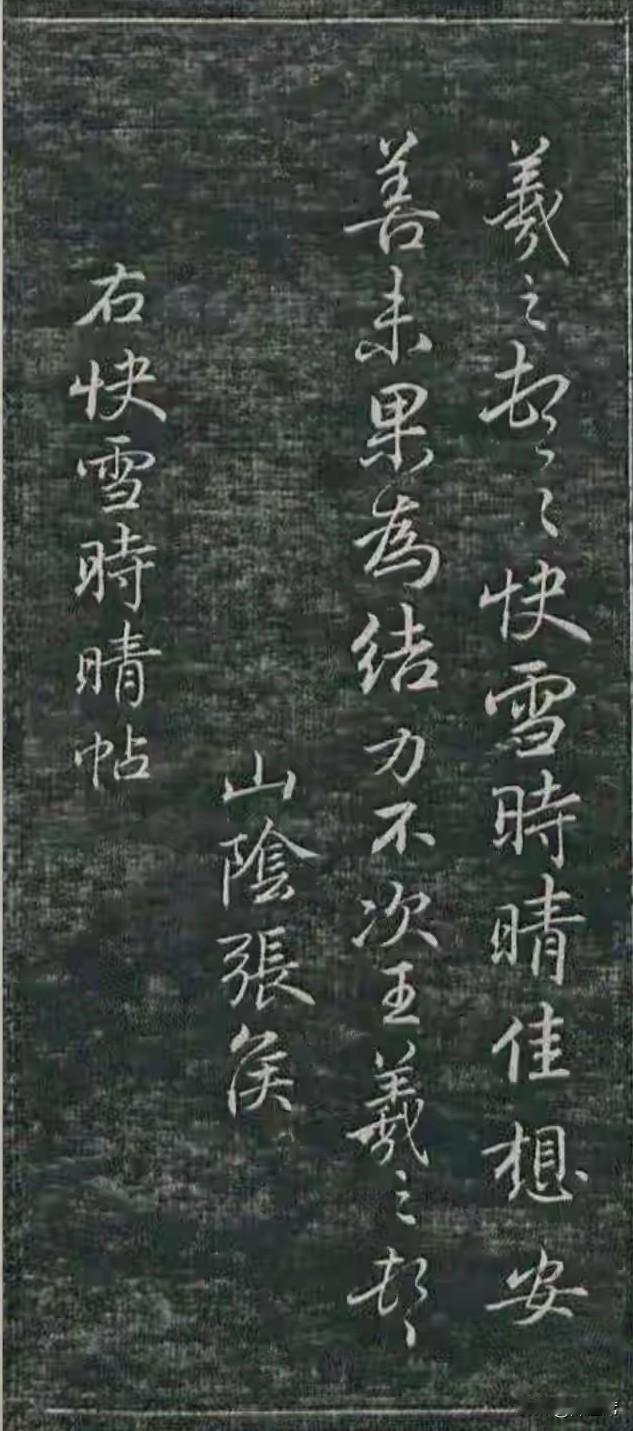 羲之頓首快雪時晴佳想安
善未果為結力不次王羲之頓首
山陰張侯
右快雪時晴帖